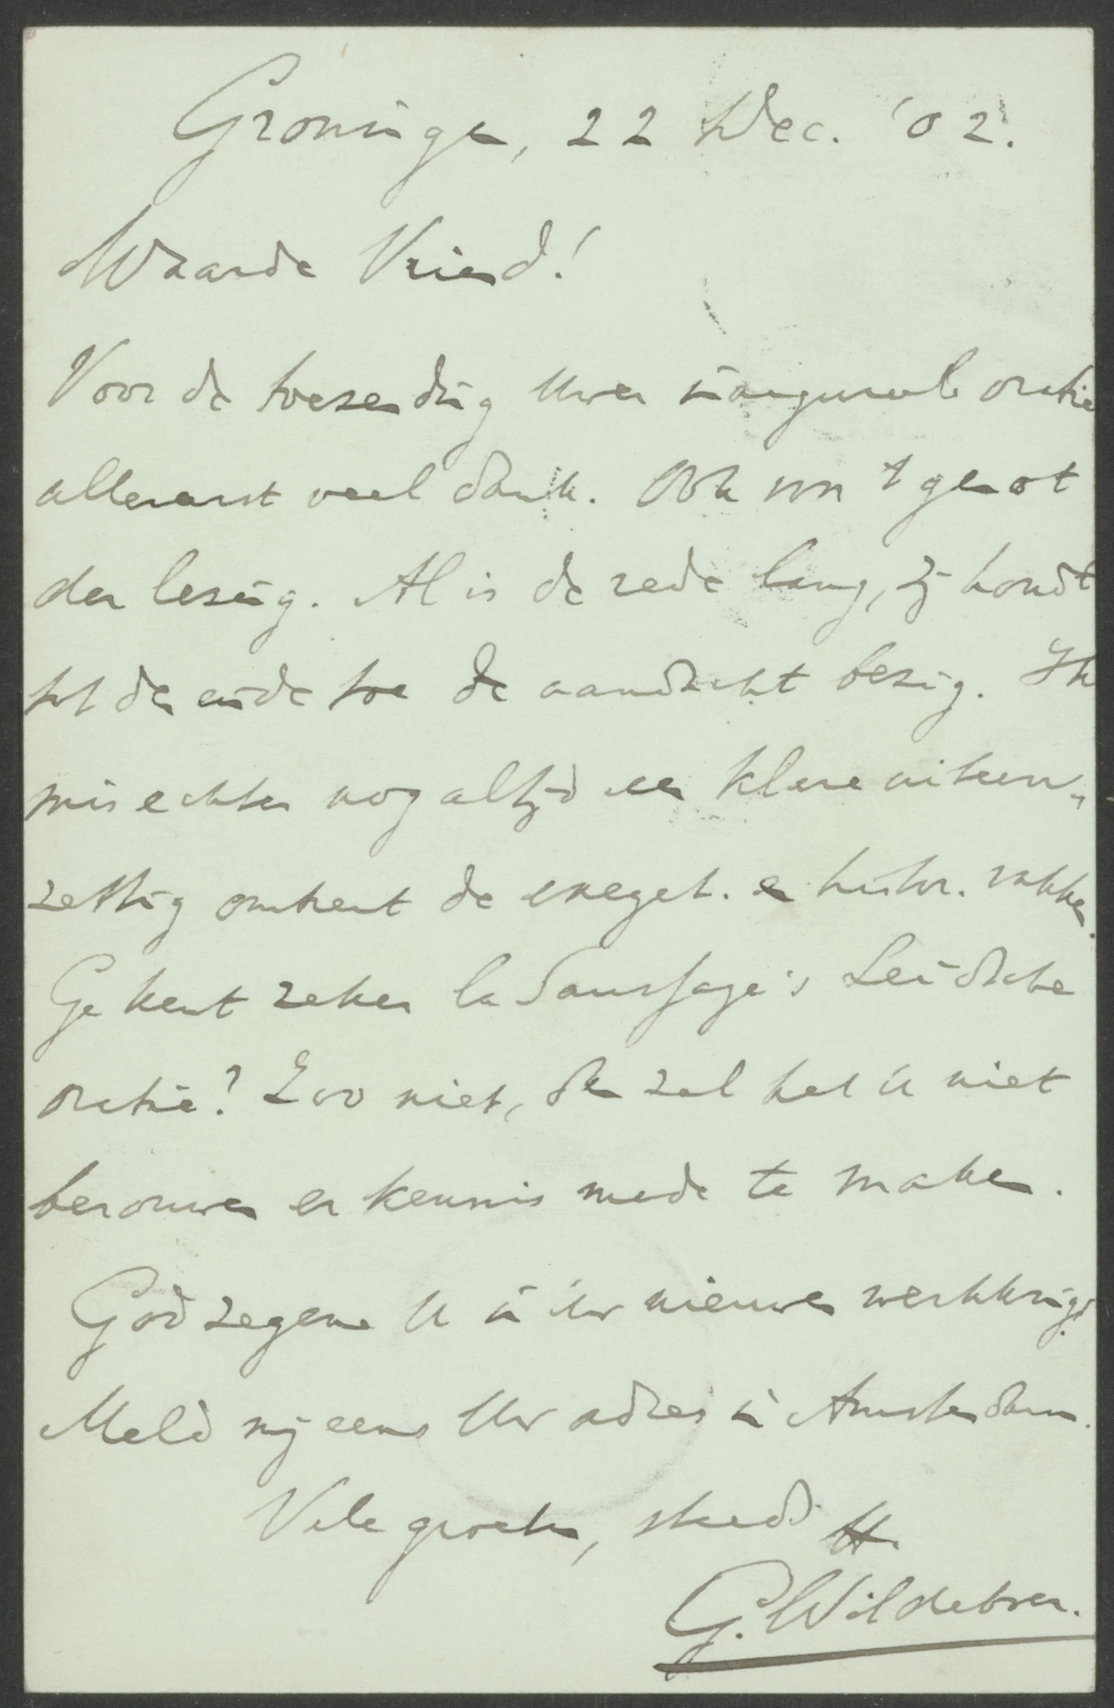 Groningen, 22 Dec. '02.
Waarde Vriend!
Voor de toezending Uwer inaugureele oratie
allereerst veel dank. Ook voor 't genot
der lezing. Al is de rede lang, zij houdt
tot den einde toe de aandacht bezig. Ik
mis echter nog altijd een klare uiteen-
zetting omtrent de exeget. en histor. vakken.
Ge kent zeker la Saussaye's Leidsche
oratie? Zoo niet, dan zal het U niet
berouwen er kennis mede te maken.
God zegene U in Uw nieuwen werkkring.
Meld mij eens Uw adres in Amsterdam.
Vele groeten, steeds tt.
G. Wildeboer.